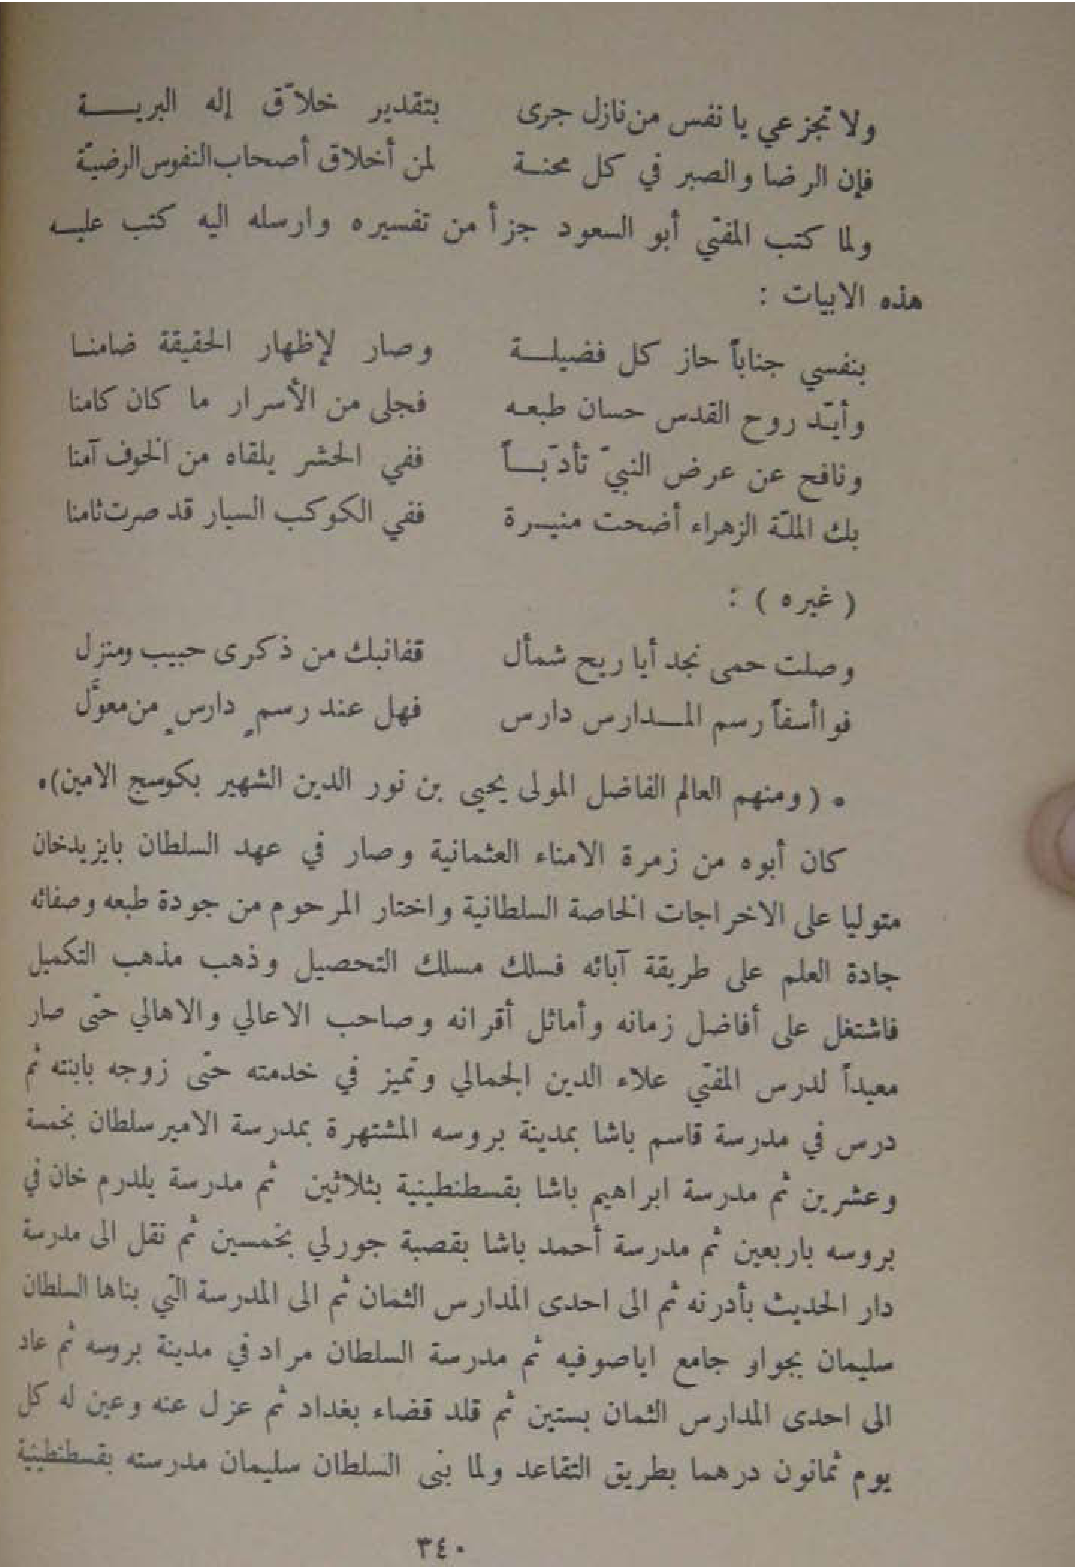 ولا تجزعي يا نفس من نازل جرى بتقدير خلاّق إله البريــة
فإن الرضا والصبر في كل محنـة لمن أخلاق أصحاب النفوس الرضيّة
ولما كتب المفتي أبو السعود جزأ من تفسيره وارسله اليه كتب عليـه
هذه الابيات :
بنفسي جناباً حاز كل فضيلـة وصار لإظهار الحقيقة ضامنـا
وأيّـد روح القدس حسان طبعـه فجلى من الأسرار ما كان كامنا
ونافح عن عرض النبيّ تأدّبـاً ففي الحشر يلقاه من الخوف آمنا
بك الملّة الزهراء أضحت منيـرة ففي الكوكب السيار قد صرت ثامنا
( غيره ) :
وصلت حمى نجد أيا ريح شمأل قفانبك من ذكرى حبيب ومنزل
فواأسفاً رسم المـدارس دارس فهل عند رسمٍ دارسٍ من معوَّل
• ( ومنهم العالم الفاضل المولى يحيى بن نور الدين الشهير بكوسج الامين)•
كان أبوه من زمرة الامناء العثمانية وصار في عهد السلطان بايزيدخان
متوليا على الاخراجات الخاصة السلطانية واختار المرحوم من جودة طبعه وصفائه
جادة العلم على طريقة آبائه فسلك مسلك التحصيل وذهب مذهب التكميل
فاشتغل على أفاضل زمانه وأماثل أقرانه وصاحب الاعالي والاهالي حتى صار
معيداً لدرس المفتي علاء الدين الجمالي وتميز في خدمته حتى زوجه بابنته ثم
درس في مدرسة قاسم باشا بمدينة بروسه المشتهرة بمدرسة الامير سلطان بخمسة
وعشرين ثم مدرسة ابراهيم باشا بقسطنطينية بثلاثين ثم مدرسة يلدرم خان في
بروسه باربعين ثم مدرسة أحمد باشا بقصبة جورلي بخمسين ثم نقل الى مدرسة
دار الحديث بأدرنه ثم الى احدى المدارس الثمان ثم الى المدرسة التي بناها السلطان
سليمان بجوار جامع اياصوفيه ثم مدرسة السلطان مراد في مدينة بروسه ثم عاد
الى احدى المدارس الثمان بستين ثم قلد قضاء بغداد ثم عزل عنه وعين له كل
يوم ثمانون درهما بطريق التقاعد ولما بنى السلطان سليمان مدرسته بقسطنطينية
٣٤٠